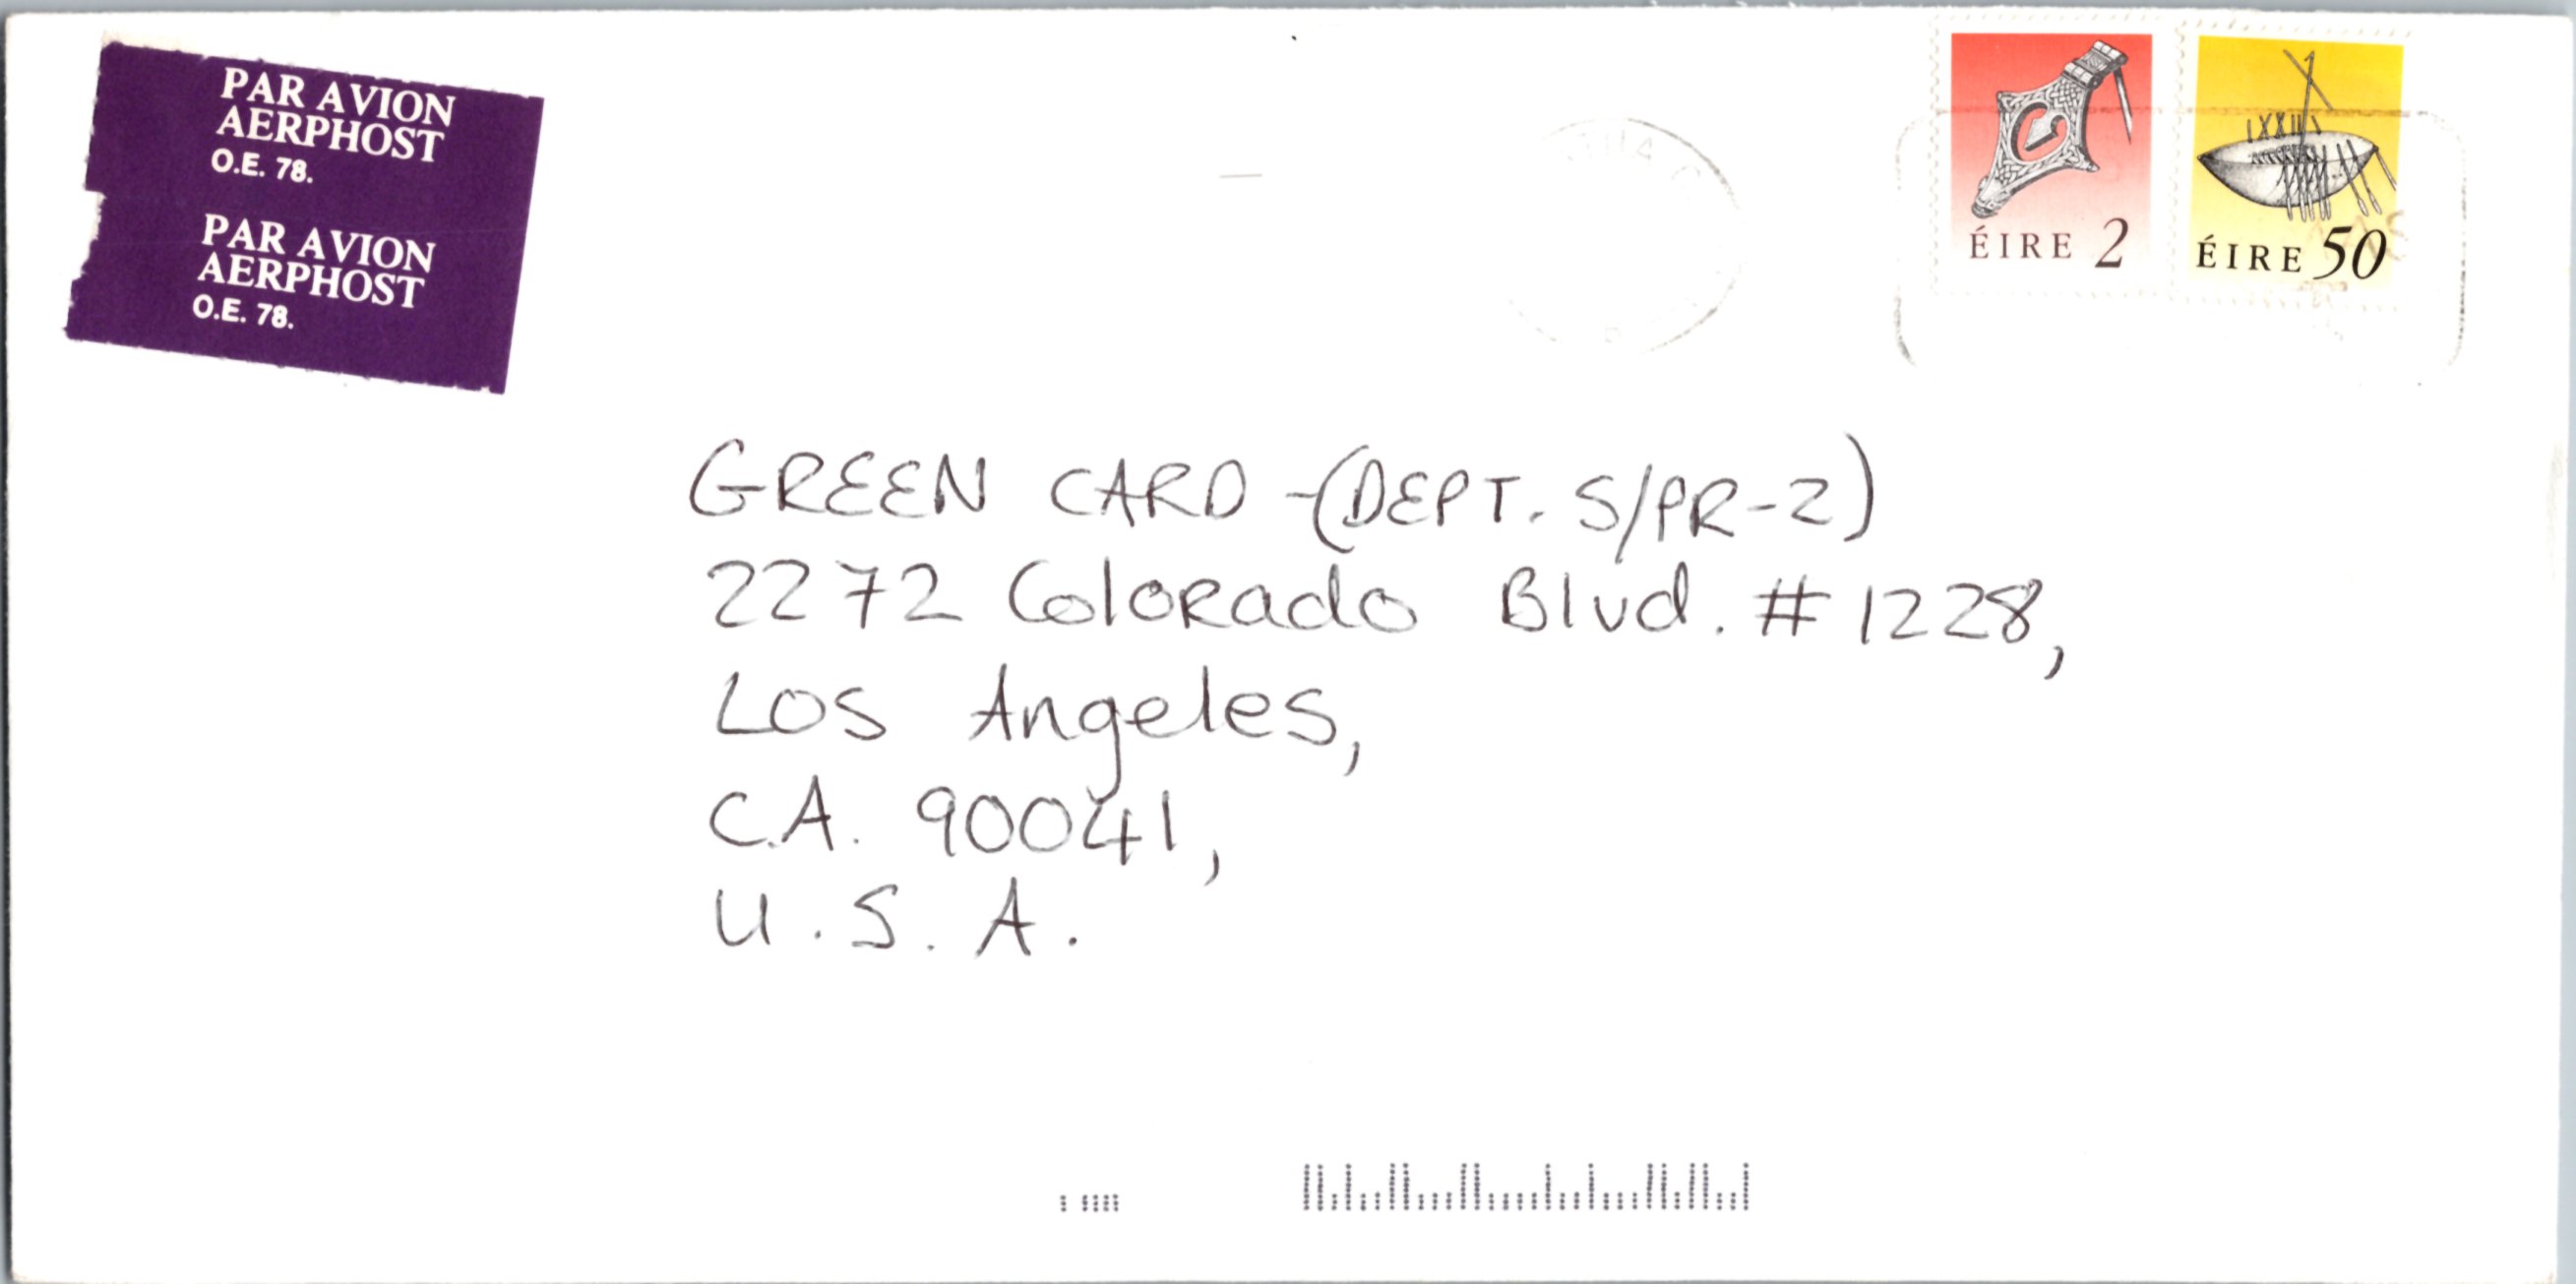 PAR AVION
AERPHOST
O.E. 78.
PAR AVION
AERPHOST
O.E. 78.
ÉIRE 2
ÉIRE 50
GREEN CARD -(DEPT. S/PR-2)
2272 Colorado Blvd. # 1228,
Los Angeles,
C.A. 90041,
U.S.A.